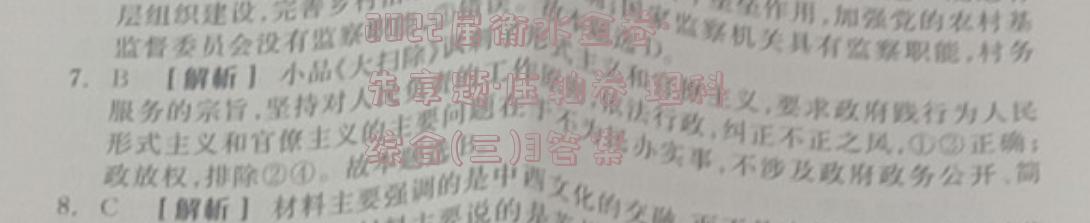 层组织建设,完善乡村
作用,加强党的农村基
监督委员会没有监察
国家监察机关具有监察职能,村务
7. B 【解析】小品《大扫除》讽刺形式主义和官僚主义,要求政府践行为人民
服务的宗旨,坚持对人民负责的工作原则,依法行政,纠正不正之风,①③正确;
形式主义和官僚主义的主要问题在于不为民办实事,不涉及政府政务公开、简
政放权,排除②④。故本题选B。
8. C 【解析】材料主要强调的是中西文化的交融
2022届衡水金卷
先享题·性轴卷 理科
综合(三)3答案